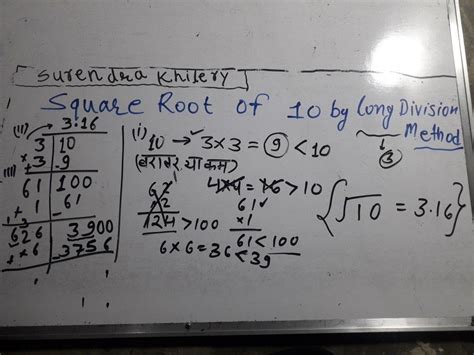 Surendra Khilery
Square Root of 10 by Long Division Method
③
(iii) 3.16
3 10
+3 -9
61 100
+1 -61
626 3900
+6 -3756
(i)
10 → 3×3 = 9 < 10
(बराबर या कम)
4×4=16 > 10
62
×2
124 > 100
61
×1
61 < 100
6×6 = 36 < 39
{√10 = 3.16}